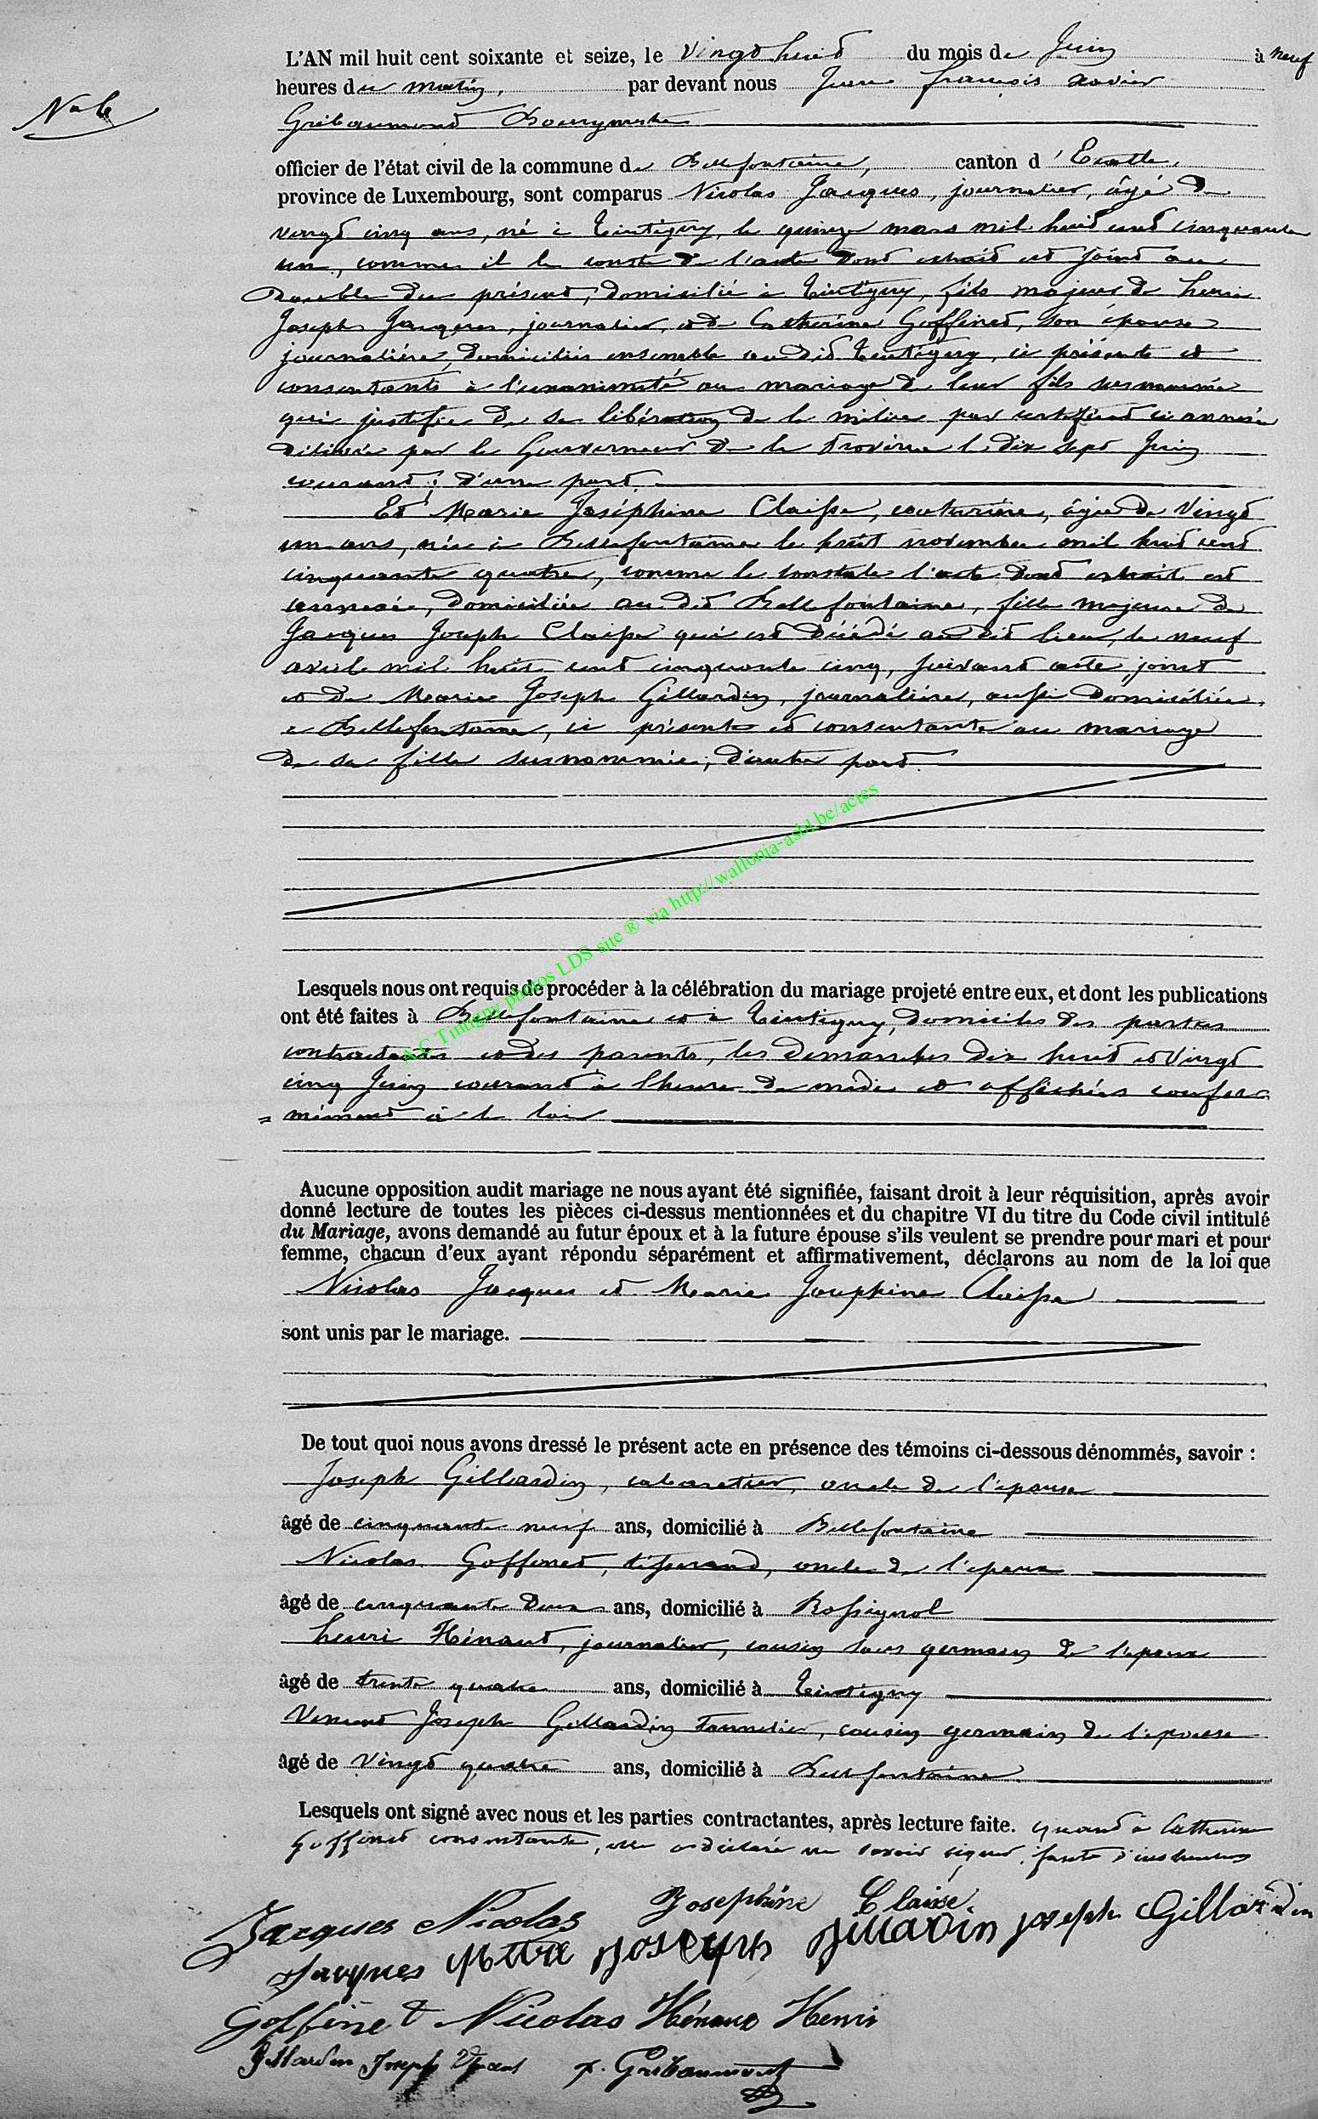 L'AN mil huit cent soixante et seize, le vingt huit du mois de Juin à neuf
N° 6
heures du matin, par devant nous Jean françois xavier
Gribaumont Bourgmestre
officier de l'état civil de la commune de Bellefontaine, canton d'Etalle,
province de Luxembourg, sont comparus Nicolas Jacques, journalier, âgé de
vingt cinq ans, né à Tintigny, le quinze mars mil huit cent cinquante
un, comme il le conste de l'acte dont extrait est joint au
double du présent, domicilié à Tintigny, fils majeur de henri
Joseph Jacques, journalier, et de Catherine Goffinet, son épouse
journalière, domiciliés ensemble au dit Tintigny, ci présents et
consentants à l'unanimité au mariage de leur fils susnommé
qui justifie de sa libération de la milice par certificat ci annexé
délivré par le Gouverneur de la Province le dix sept Juin
courant; d'une part.
Et Marie Joséphine Claisse, couturière, âgée de vingt
un ans, née à Bellefontaine le huit novembre mil huit cent
cinquante quatre, comme le constate l'acte dont extrait est
annexé, domiciliée au dit Bellefontaine, fille majeure de
Jacques Joseph Claisse qui est décédé au dit lieu, le neuf
avril mil huit cent cinquante cinq, suivant acte joint
et de Marie Joseph Gillardin, journalière, aussi domiciliée
à Bellefontaine, ci présente et consentante au mariage
de sa fille susnommée; d'autre part.
A.C Tintigny photos LDS site ® via http://wallonia-asbl.be/actes
Lesquels nous ont requis de procéder à la célébration du mariage projeté entre eux, et dont les publications
ont été faites à Bellefontaine et à Tintigny, domiciles des parties
contractantes et des parents, les dimanches dix huit et vingt
cinq Juin courant à l'heure de midi et affichées confor-
= mément à la loi
Aucune opposition audit mariage ne nous ayant été signifiée, faisant droit à leur réquisition, après avoir
donné lecture de toutes les pièces ci-dessus mentionnées et du chapitre VI du titre du Code civil intitulé
du Mariage, avons demandé au futur époux et à la future épouse s'ils veulent se prendre pour mari et pour
femme, chacun d'eux ayant répondu séparément et affirmativement, déclarons au nom de la loi que
Nicolas Jacques et Marie Josephine Claisse
sont unis par le mariage.
De tout quoi nous avons dressé le présent acte en présence des témoins ci-dessous dénommés, savoir :
Joseph Gillardin, cabaretier, oncle de l'épouse
âgé de cinquante neuf ans, domicilié à Bellefontaine
Nicolas Goffinet, tisserand, oncle de l'époux
âgé de cinquante deux ans, domicilié à Rossignol
henri Hénaut, journalier, cousin sous germain de l'époux
âgé de trente quatre ans, domicilié à Tintigny
Joseph Gillardin tonnelier, cousin germain de l'épouse
âgé de vingt quatre ans, domicilié à Bellefontaine
Lesquels ont signé avec nous et les parties contractantes, après lecture faite. quant à Catherine
Goffinet consentante, elle a déclaré ne savoir signer, faute d'instruction
Jacques Nicolas Josephine Claixe.
Jacques Joseph Gillardin Joseph Gillardin
Goffinet Nicolas Hénaux Henri
Gillardin Joseph x. Gribaumont